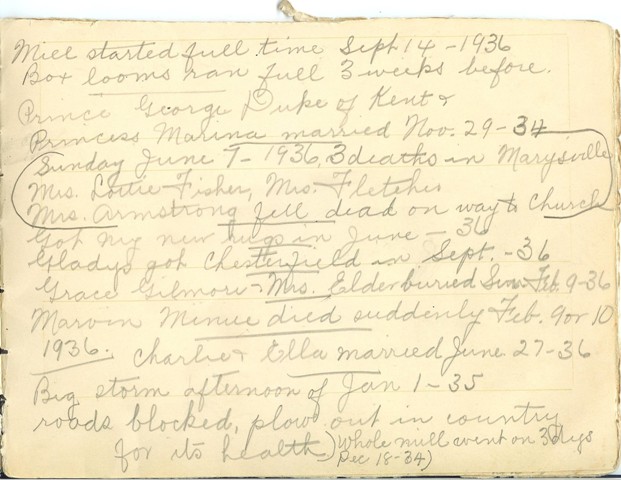 Mill started full time Sept 14 - 1936
Box looms ran full 3 weeks before.
Prince George Duke of Kent &
Princess Marina married Nov. 29 - 34
Sunday June 7 - 1936, 3 deaths in Marysville
Mrs. Lottie Fisher, Mrs. Fletcher
Mrs. Armstrong fell dead on way to Church
Got my new rugs in June - 36
Gladys got Chesterfield in Sept. - 36
Grace Gilmore - Mrs. Elder buried Sun. Feb. 9 - 36
Marvin Minue died suddenly Feb. 9 or 10
1936. Charlie & Ella married June 27 - 36
Big storm afternoon of Jan 1 - 35
roads blocked, plow out in country
for its health) Whole mill went on 3 days
Dec 18 - 34)